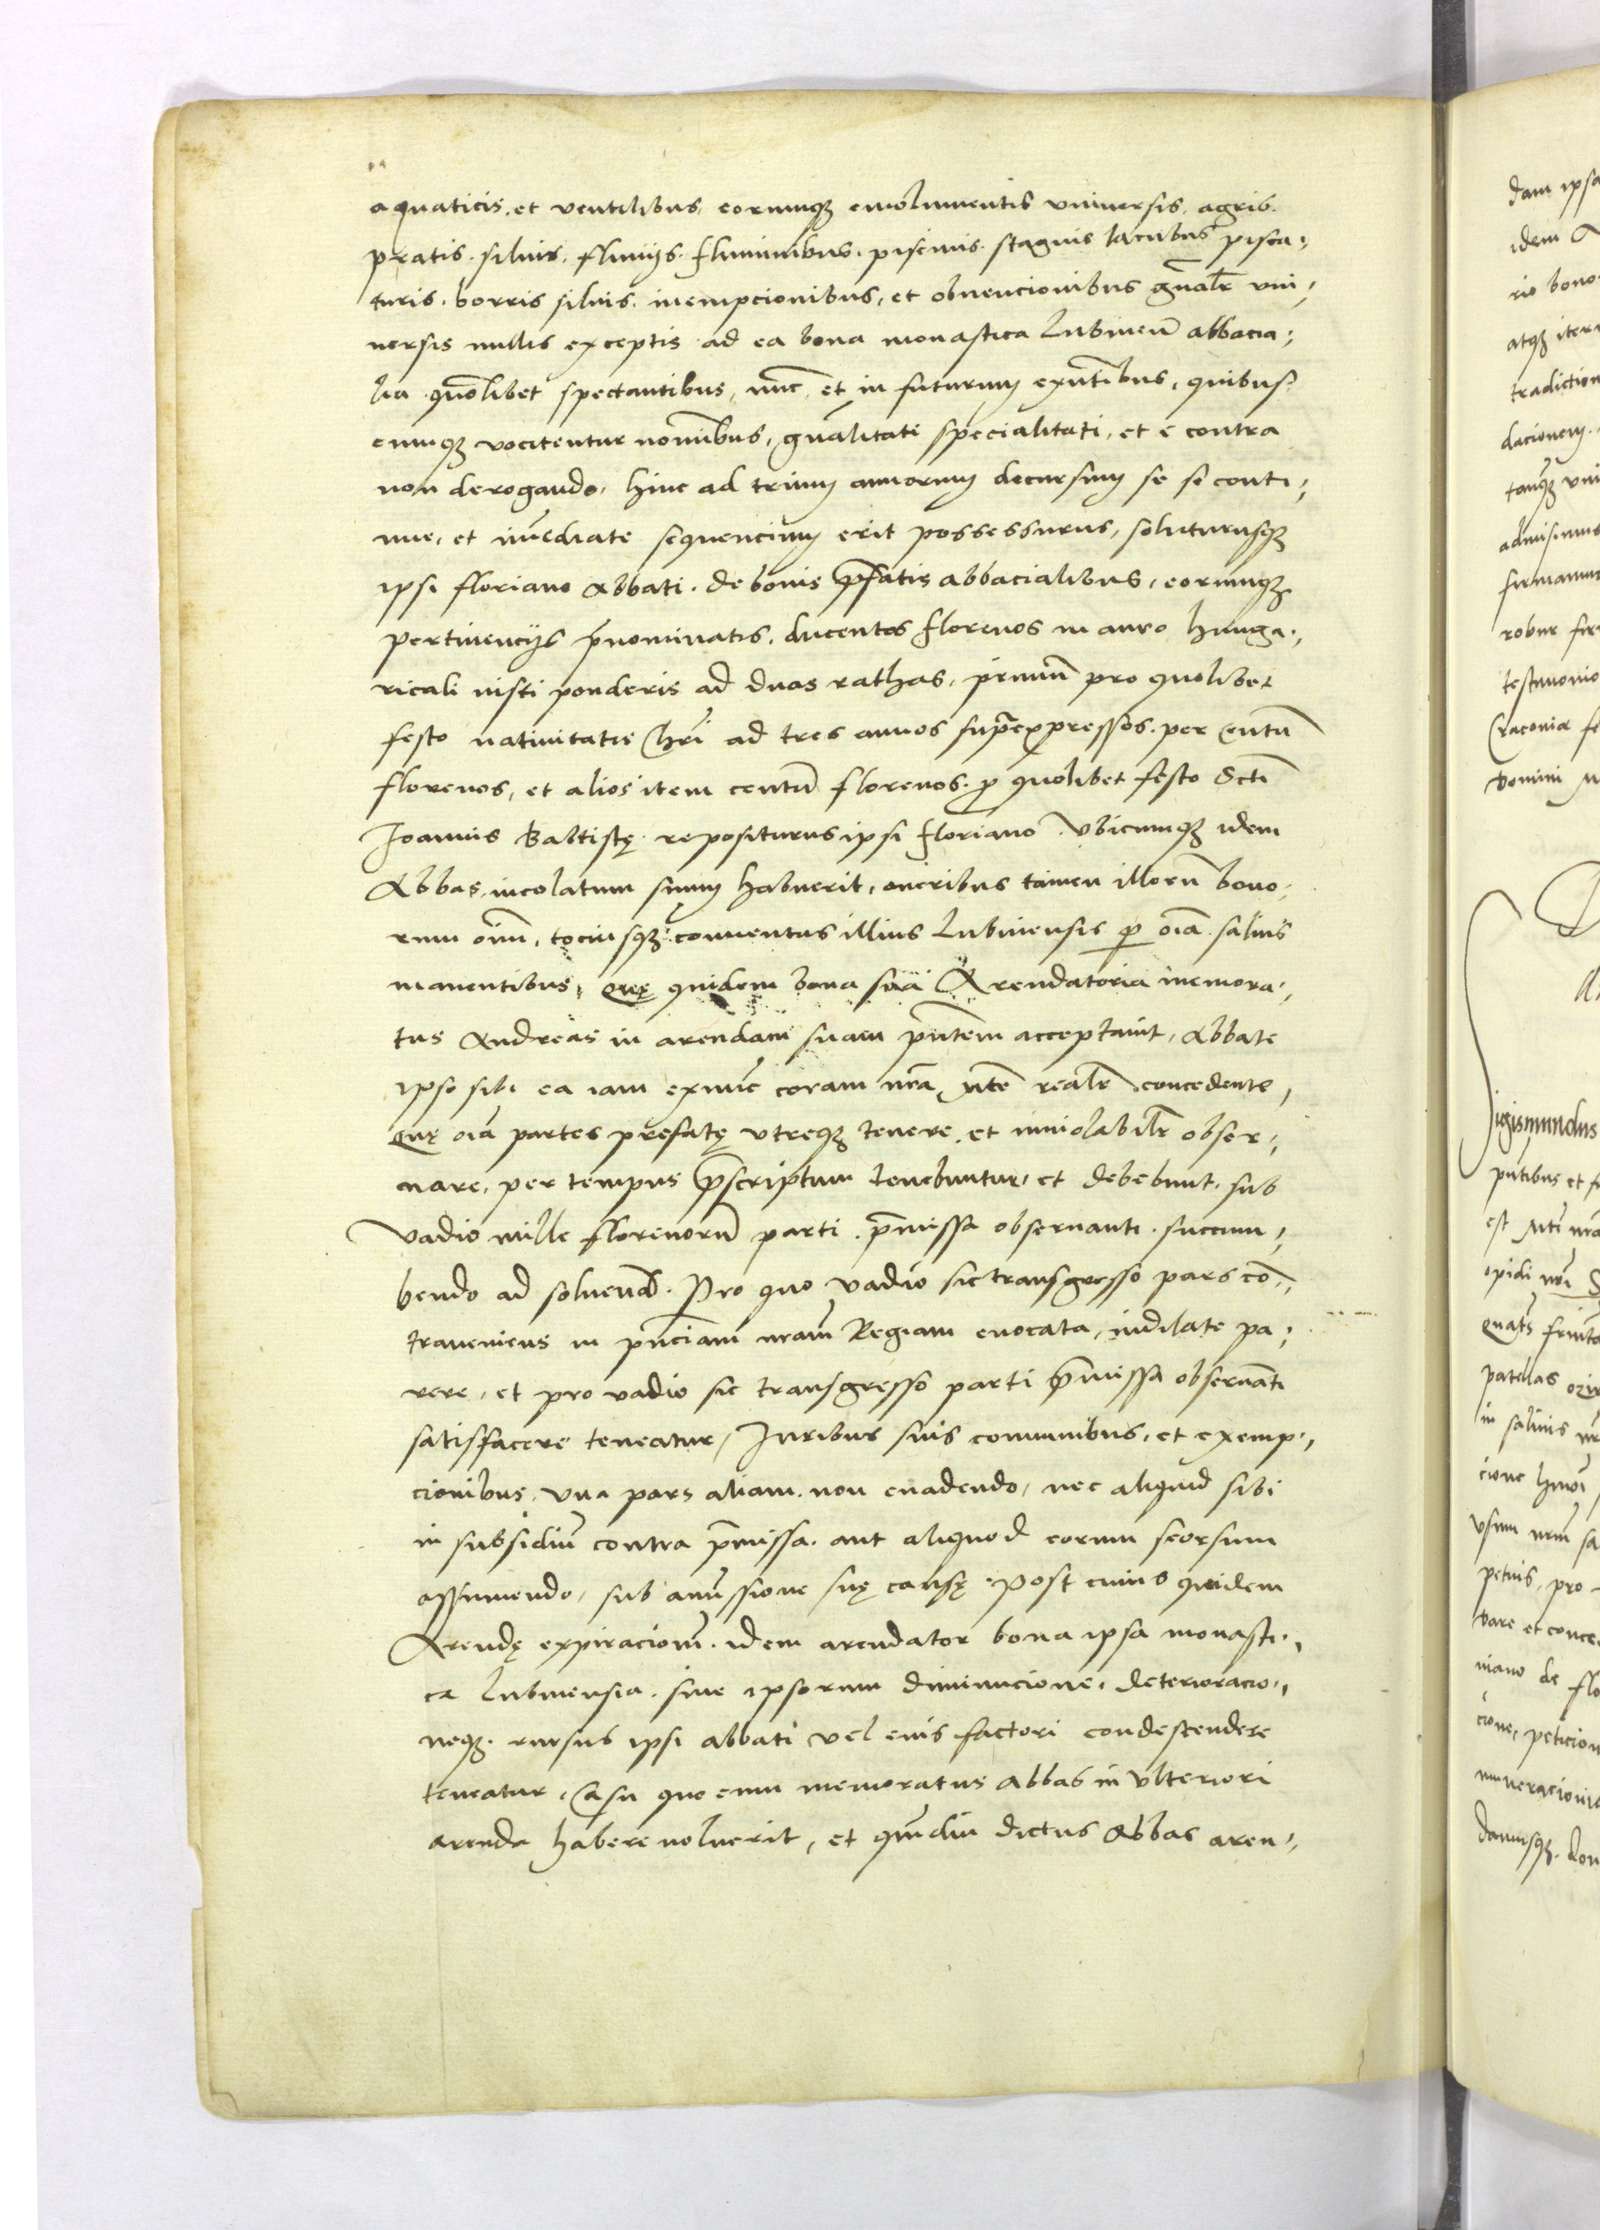 aquaticis, et ventilibus, eorumqꝫ emolumentis vniuersis, agris.
pratis. siluis. fluuijs. fluminibus. piscinis. stagnis lacubus pisca-
turis. borris siluis. inempcionibus, et obuencionibus gn̄alr̄ vni-
uersis nullis exceptis ad ea bona monastica Lubineñ abbacia-
lia quōlibet spectantibus, nūc, et in futurum exn̄tibus, quibus-
cumqꝫ vocitentur nomībus, gn̄alitati specialitati, et e contra
non derogando, hinc ad trium annorum decursum se se conti-
nue, et im̄ediate sequencium erit possessurus, soluturusqꝫ
ipsi floriano Abbati. de bonis p̄fatis abbacialibus, eorumqꝫ
pertinencijs p̄nominatis, ducentos florenos in auro hunga-
ricali iusti ponderis ad duas rathas, primum̄ pro quolibet
festo natiuitatis Chr̄i ad tres annos supra expressos. per Centū
florenos, et alios item centū florenos. ꝑ quolibet festo Sctī
Joannis Babtistę repositurus ipsi floriano Vbicumqꝫ idem
Abbas incolatum suum habuerit, oneribus tamen illorū bono-
rum oīm, tociusqꝫ conuentus illius Lubinensis ꝑ oīa saluis
manentibus, Quę quidem bona sua Arendatoria memora-
tus Andreas in arendam suam pn̄tem acceptauit, Abbate
ipso sibi ea iam exnunc coram nr̄a Mte realr̄ concedente,
Quę oīa partes prefatę vtręqꝫ tenere, et inuiolabilr̄ obser-
uare, per tempus p̄scriptum tenebuntur, et debebunt, sub
vadio mille florenorū parti. p̄missa obseruanti. succum-
bendo ad soluend̄. Pro quo vadio sic transgresso pars cō-
traueniens in pn̄ciam nrām Regiam euocata, indilate pa-
rere, et pro vadio sic transgresso parti p̄missa obseruāti
satisfacere teneatur, Juribus suis communibus, et exemp-
cionibus, vna pars aliam non euadendo, nec aliquid sibi
in subsidiū contra p̄missa. aut aliquod eorum seorsum
assumendo, sub amissione suę causę. Post cuius quidem
Arendę expiracionem̄. idem arendator bona ipsa monasti-
ca Lubinensia. sine ipsorum diminucione, deterioracio-
neqꝫ. rursus ipsi abbati vel eius factori condescendere
teneatur, Casu quo eum memoratus Abbas in vlteriori
arenda habere noluerit, et quādiu dictus Abbas aren-
dam ipsa
idem
rio bono
atqꝫ iter
tradiction
dacionem.
admisimus
firmamus
robur fir
testimonio
Cracouiæ fe
Domini
Sigismundus
pn̄tibus et
est
opidi nrī
patellas
in salinis
cione
vsum nrm̄ sa
petuis, pro
dare et conce
niano de flo
cione, peticion
muneracionis